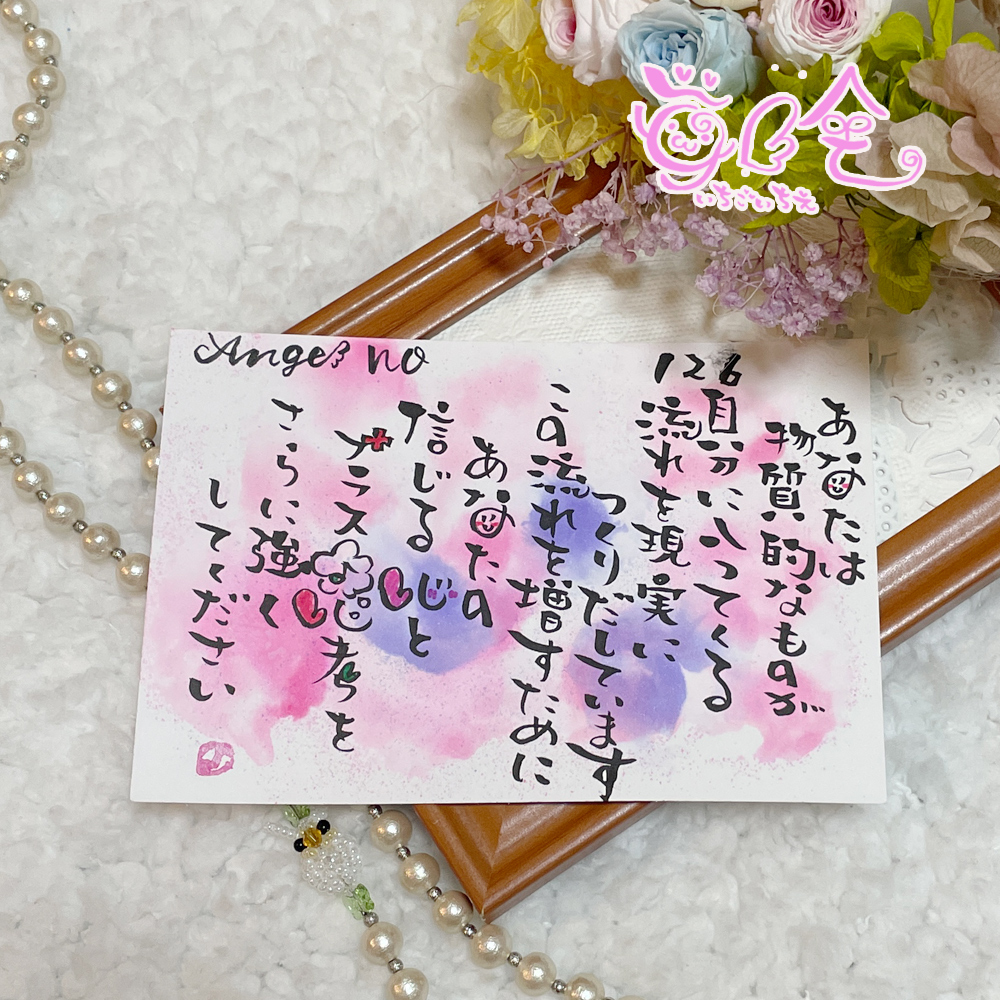 Angel no
126
あなたは
物質的なものが
自分に入ってくる
流れを現実に
つくりだしています
この流れを増すために
あなたの
信じる心と
プラス思考を
さらに強く
してください
いちごいちえ